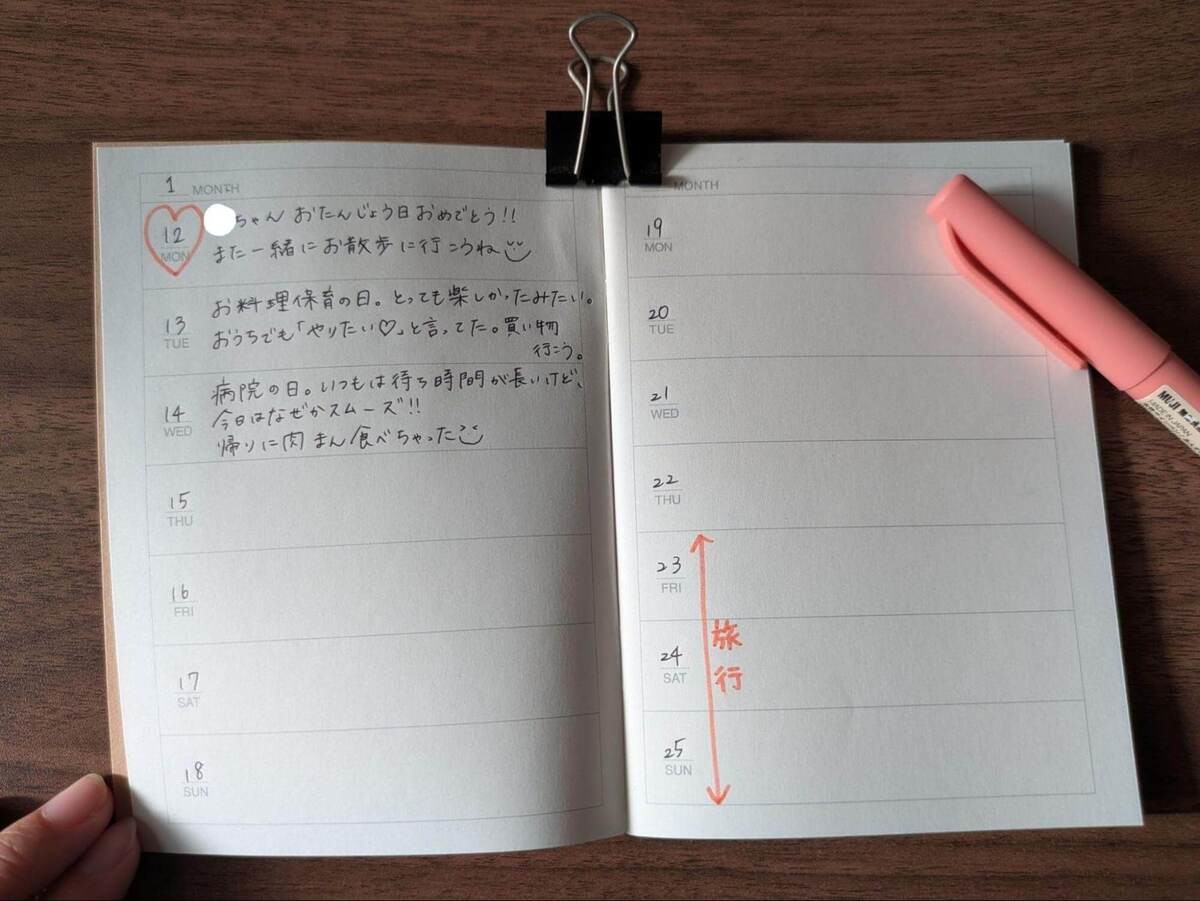 1 MONTH
12 MON
ちゃん おたんじょう日 おめでとう!!
また一緒にお散歩に行こうね
13 TUE
お料理保育の日。とっても楽しかったみたい。
おうちでも「やりたい♡」と言ってた。買い物
行こう。
14 WED
病院の日。いつもは待ち時間が長いけど、
今日はなぜかスムーズ!!
帰りに肉まん食べちゃった
15 THU
16 FRI
17 SAT
18 SUN
MONTH
19 MON
20 TUE
21 WED
22 THU
23 FRI
24 SAT
25 SUN
旅行
MUJI
MADE IN JAPAN